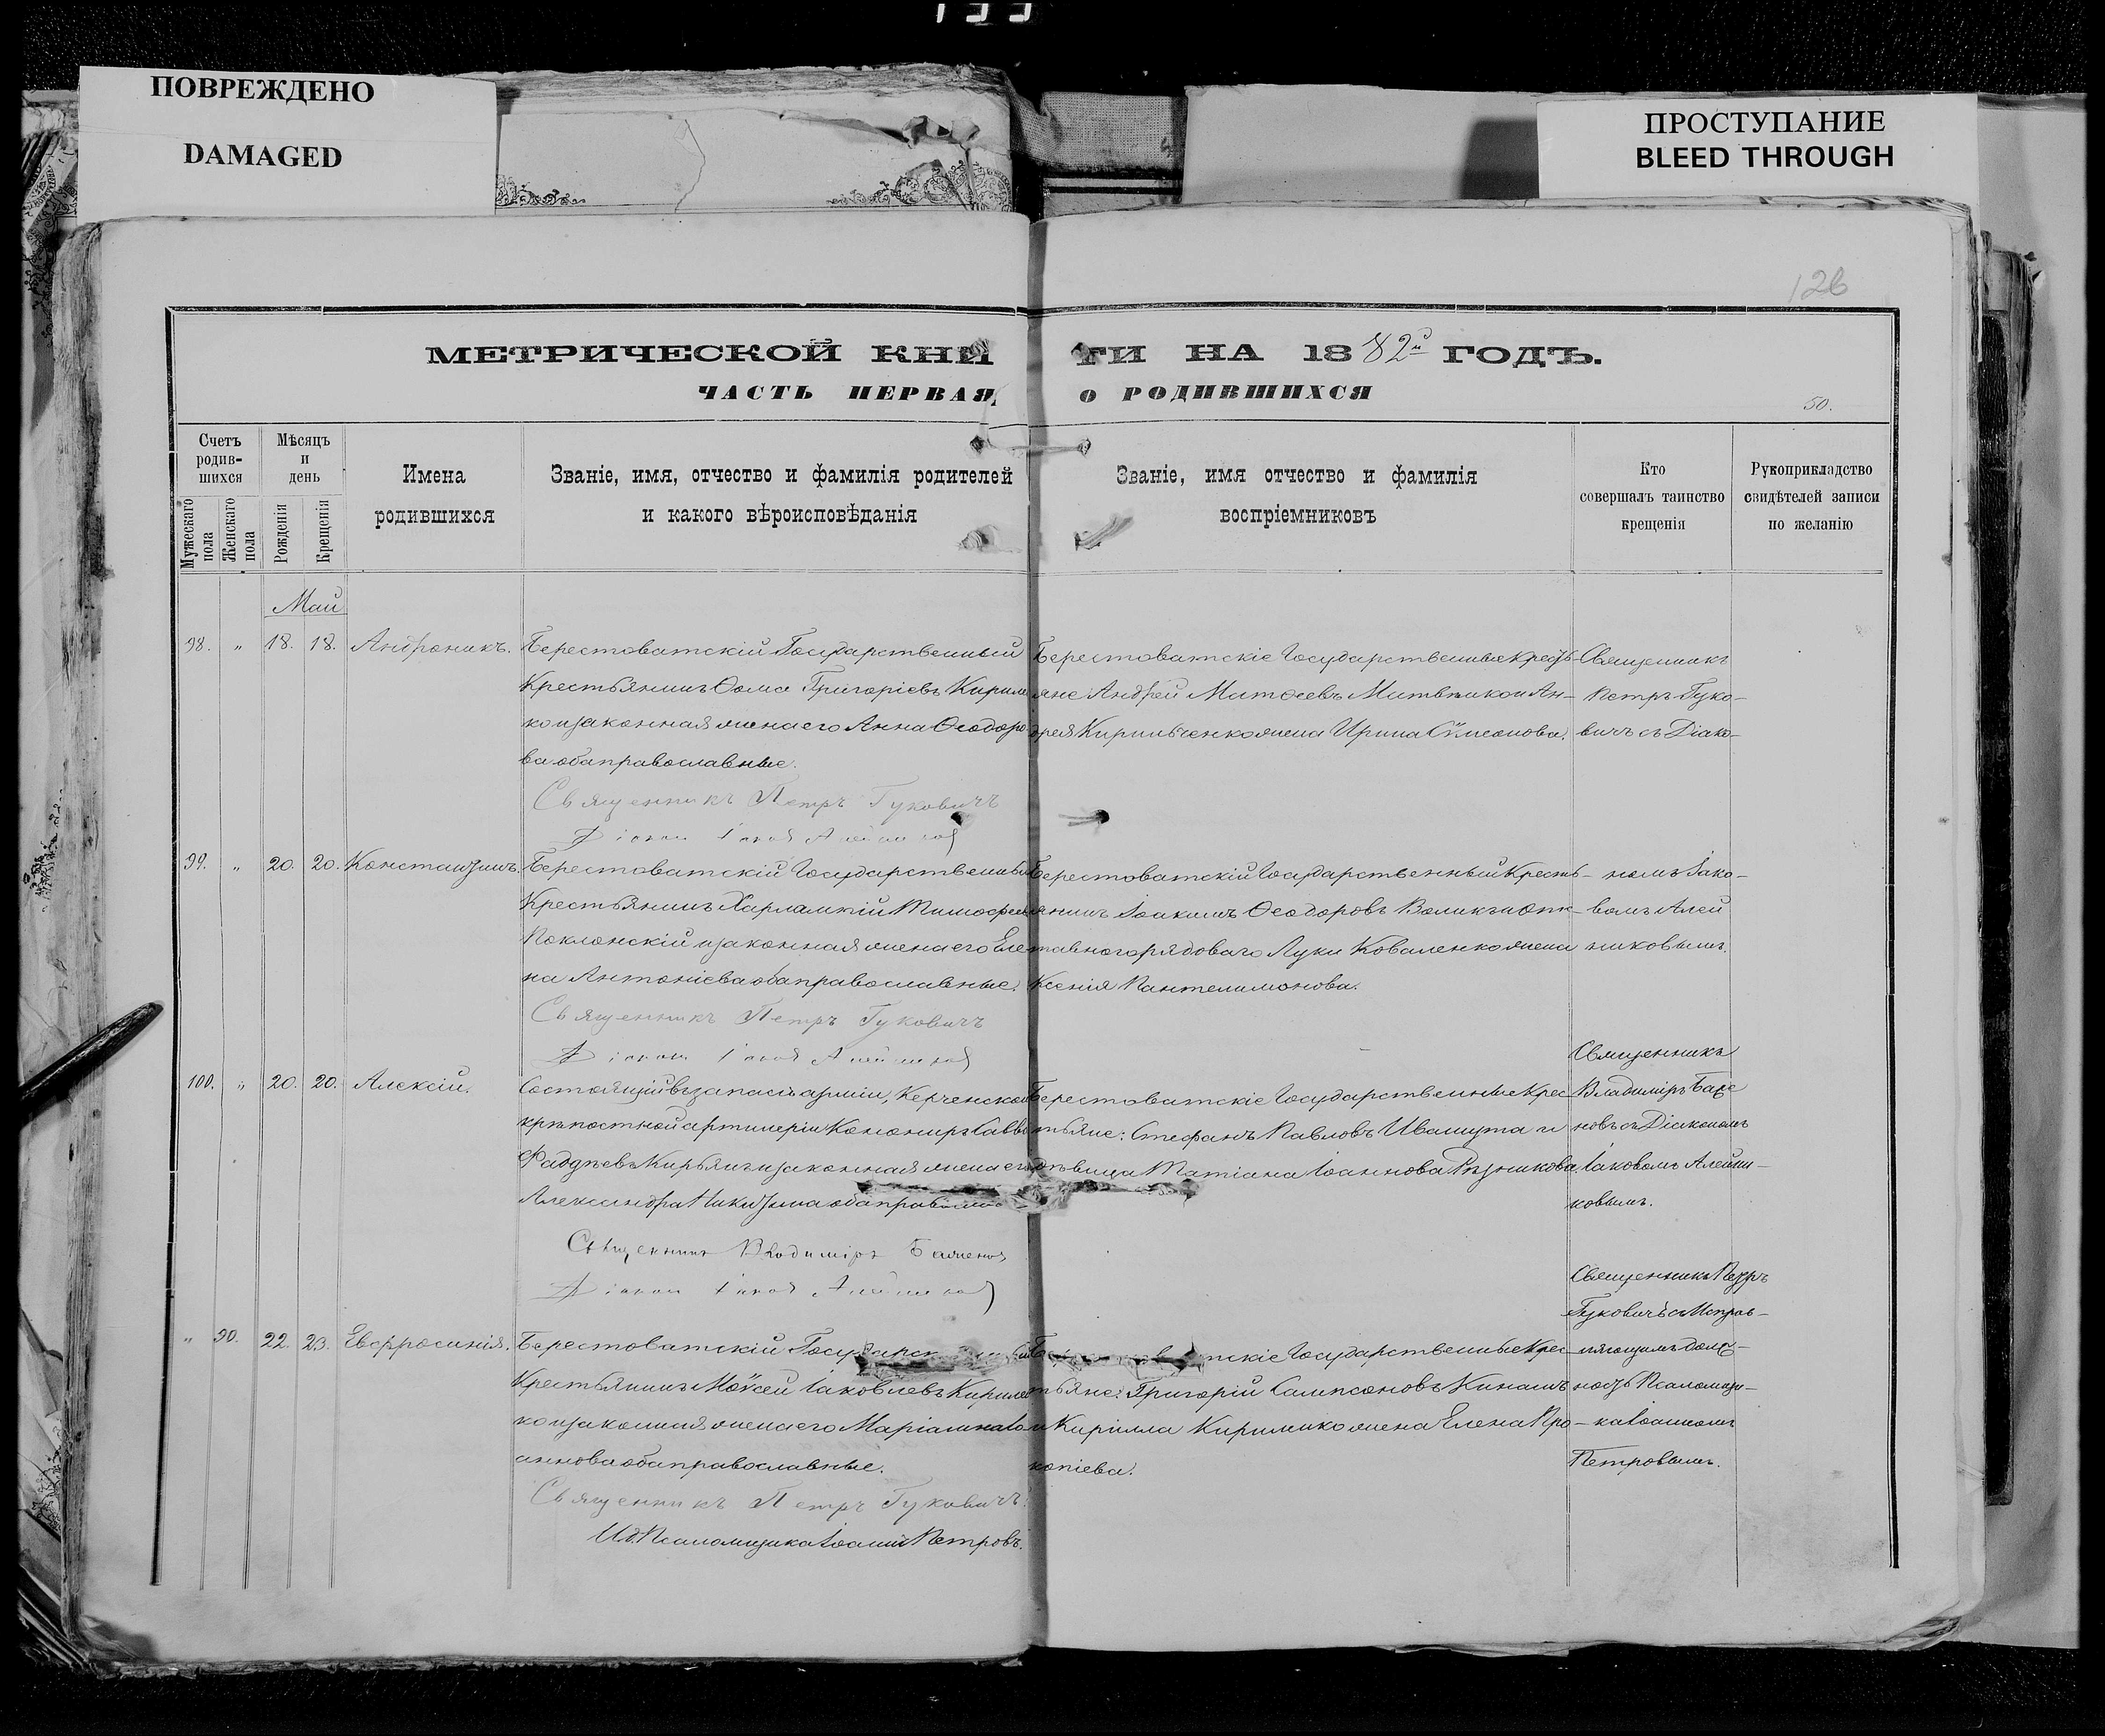 ПОВРЕЖДЕНО
DAMAGED
ПРОСТУПАНИЕ
BLEED THROUGH
126
МЕТРИЧЕСКОЙ КНИГИ НА 1882й ГОДЪ.
ЧАСТЬ ПЕРВАЯ, О РОДИВШИХСЯ
50.
Счетъ родившихся
Мужескаго пола
Женскаго пола
Мѣсяцъ и день
Рожденія
Крещенія
Имена родившихся
Званіе, имя, отчество и фамилія родителей
и какого вѣроисповѣданія
Званіе, имя отчество и фамилія
воспріемниковъ
Кто
совершалъ таинство
крещенія
Рукоприкладство
свидѣтелей записи
по желанію
Май
98. " 18. 18. Андроникъ.
Берестоватскій Государственный
Крестьянинъ Ѳома Григоріевъ Кирилен
ко и законная жена его Анна Ѳеодоро
ва оба православные.
Священникъ Петръ Гуковичъ
Діаконъ Іаковъ Алейниковъ
Берестоватскіе Государственные Кресть-
яне Андрей Матѳеевъ и Ан-
дрея жена Ирина Сѵмеонова.
Священникъ
Петръ Гуко-
вичъ съ Діако-
99. " 20. 20. Константинъ.
Берестоватскій Государственный
Крестьянинъ Харлампій Тимофеевъ
Поклонскій и законная жена его Еле
на Антоніева оба православные.
Священникъ Петръ Гуковичъ
Діаконъ Іаковъ Алейниковъ
Берестоватскій Государственный Кресть-
янинъ Іоакимъ Ѳеодоровъ Воликъ и отс-
тавного рядоваго Луки Коваленко жена
Ксенія Пантелимонова.
номъ Іако-
вомъ Алей
никовымъ.
100. " 20. 20. Алексій.
Состоящій въ запасѣ арміи, Керченской
крѣпостной артилеріи Канониръ Савва
Фаддѣевъ Кирьянъ и законная жена его
Александра Никитина оба православные
Священникъ Владиміръ Баженовъ
Діаконъ Іаковъ Алейниковъ
Берестоватскіе Государственные Крес
тьяне: Стефанъ Павловъ Ивашута и
дѣвица Татіана Іоаннова Рѣзникова
Священникъ
Владиміръ Баже
новъ съ Діакономъ
Іаковомъ Алейни-
ковымъ.
" 90. 22. 23. Евфросинія.
Берестоватскій Государственный
Крестьянинъ Моѵсей Іаковлевъ Кирилен
ко и законная жена его Маріамна Іо
аннова оба православные.
Священникъ Петръ Гуковичъ
И.д. Псаломщика Іоаннъ Петровъ.
Берестоватскіе Государственные Крес
тьяне: Григорій Сампсоновъ Кинашъ
и Кирилла жена Елена Про-
копіева.
Священникъ Петръ
Гуковичъ съ Исправ-
ляющимъ долж-
ность Псаломщи-
ка Іоанномъ
Петровымъ.